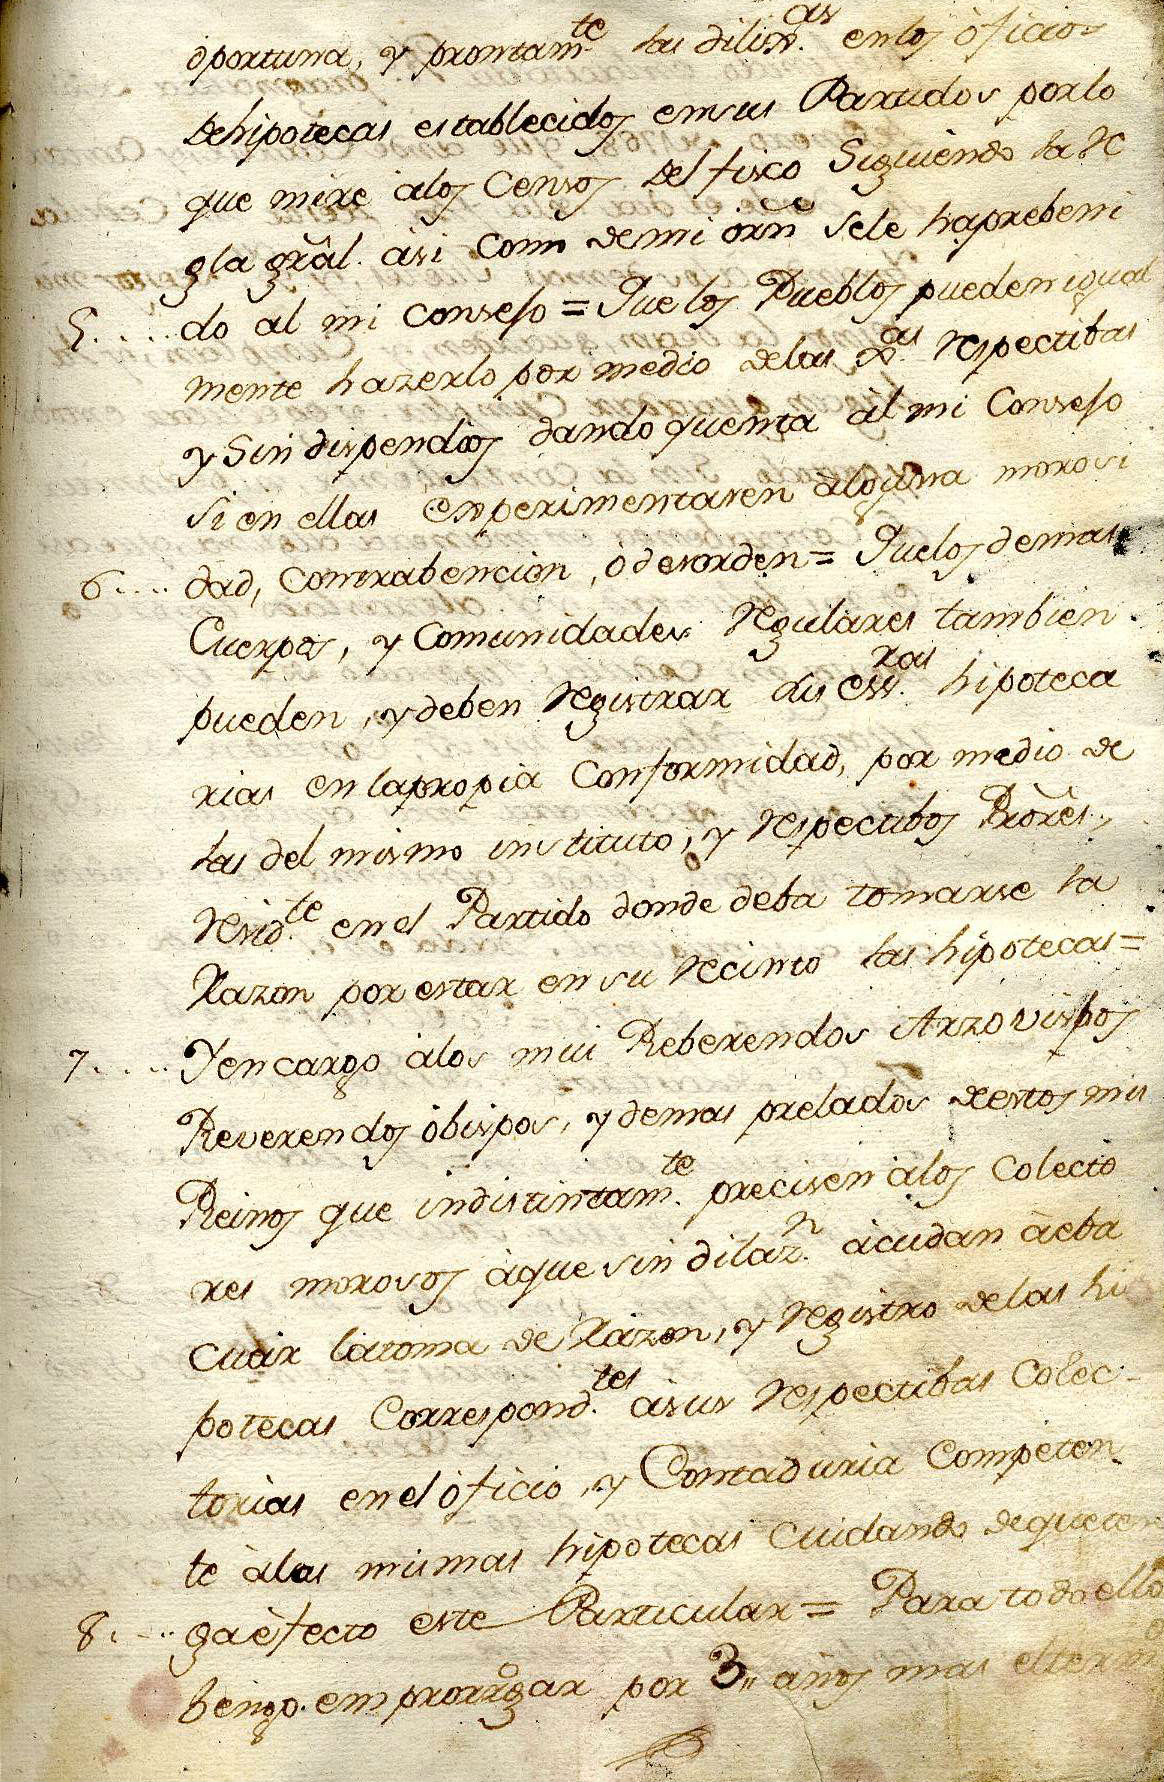 oportuna, y prontam.te las dilix.as en los òficios
de hipotecas establecidos en sus Partidos por lo
que mire àlos Censos del fisco Siguiendo la Re
gla grãl. àsi como de mi òrñ se le ha prebeni
5..... do al mi consejo = Que los Pueblos pueden igual
mente hazerlo por medio delas xas respectibas
y Sin dispendios dando quenta àl mi Consejo
si en ellas experimentasen àlguna morosi
6.... dad, Contrabencion, ò desorden = Que los demas
Cuerpos, y Comunidades regulares tambien
pueden, y deben registrar sus ess.ras hipoteca
rias en la propia Conformidad, por medio de
las del mismo instituto, y respectibos Prõres,
resid.te en el Partido donde deba tomarse la
Razon por estar en su recinto las hipotecas =
7.... Y encargo àlos mui Reberendos Arzovispos
Reverendos òbispos, y demas prelados de estos mis
Reinos que indistintam.te precisen àlos Colecto
res morosos àque sin dilaz.n àcudan àeba
cuar la toma de Razon, y registro de las hi
potecas Correspond.tes àsus respectibas Colec-
torias en el òficio, y Contaduria Competen
te àlas mismas hipotecas Cuidando de que ten
8.... ga èfecto este Particular = Para todo ello
bengo en prorrogar por 3,, años mas el termino